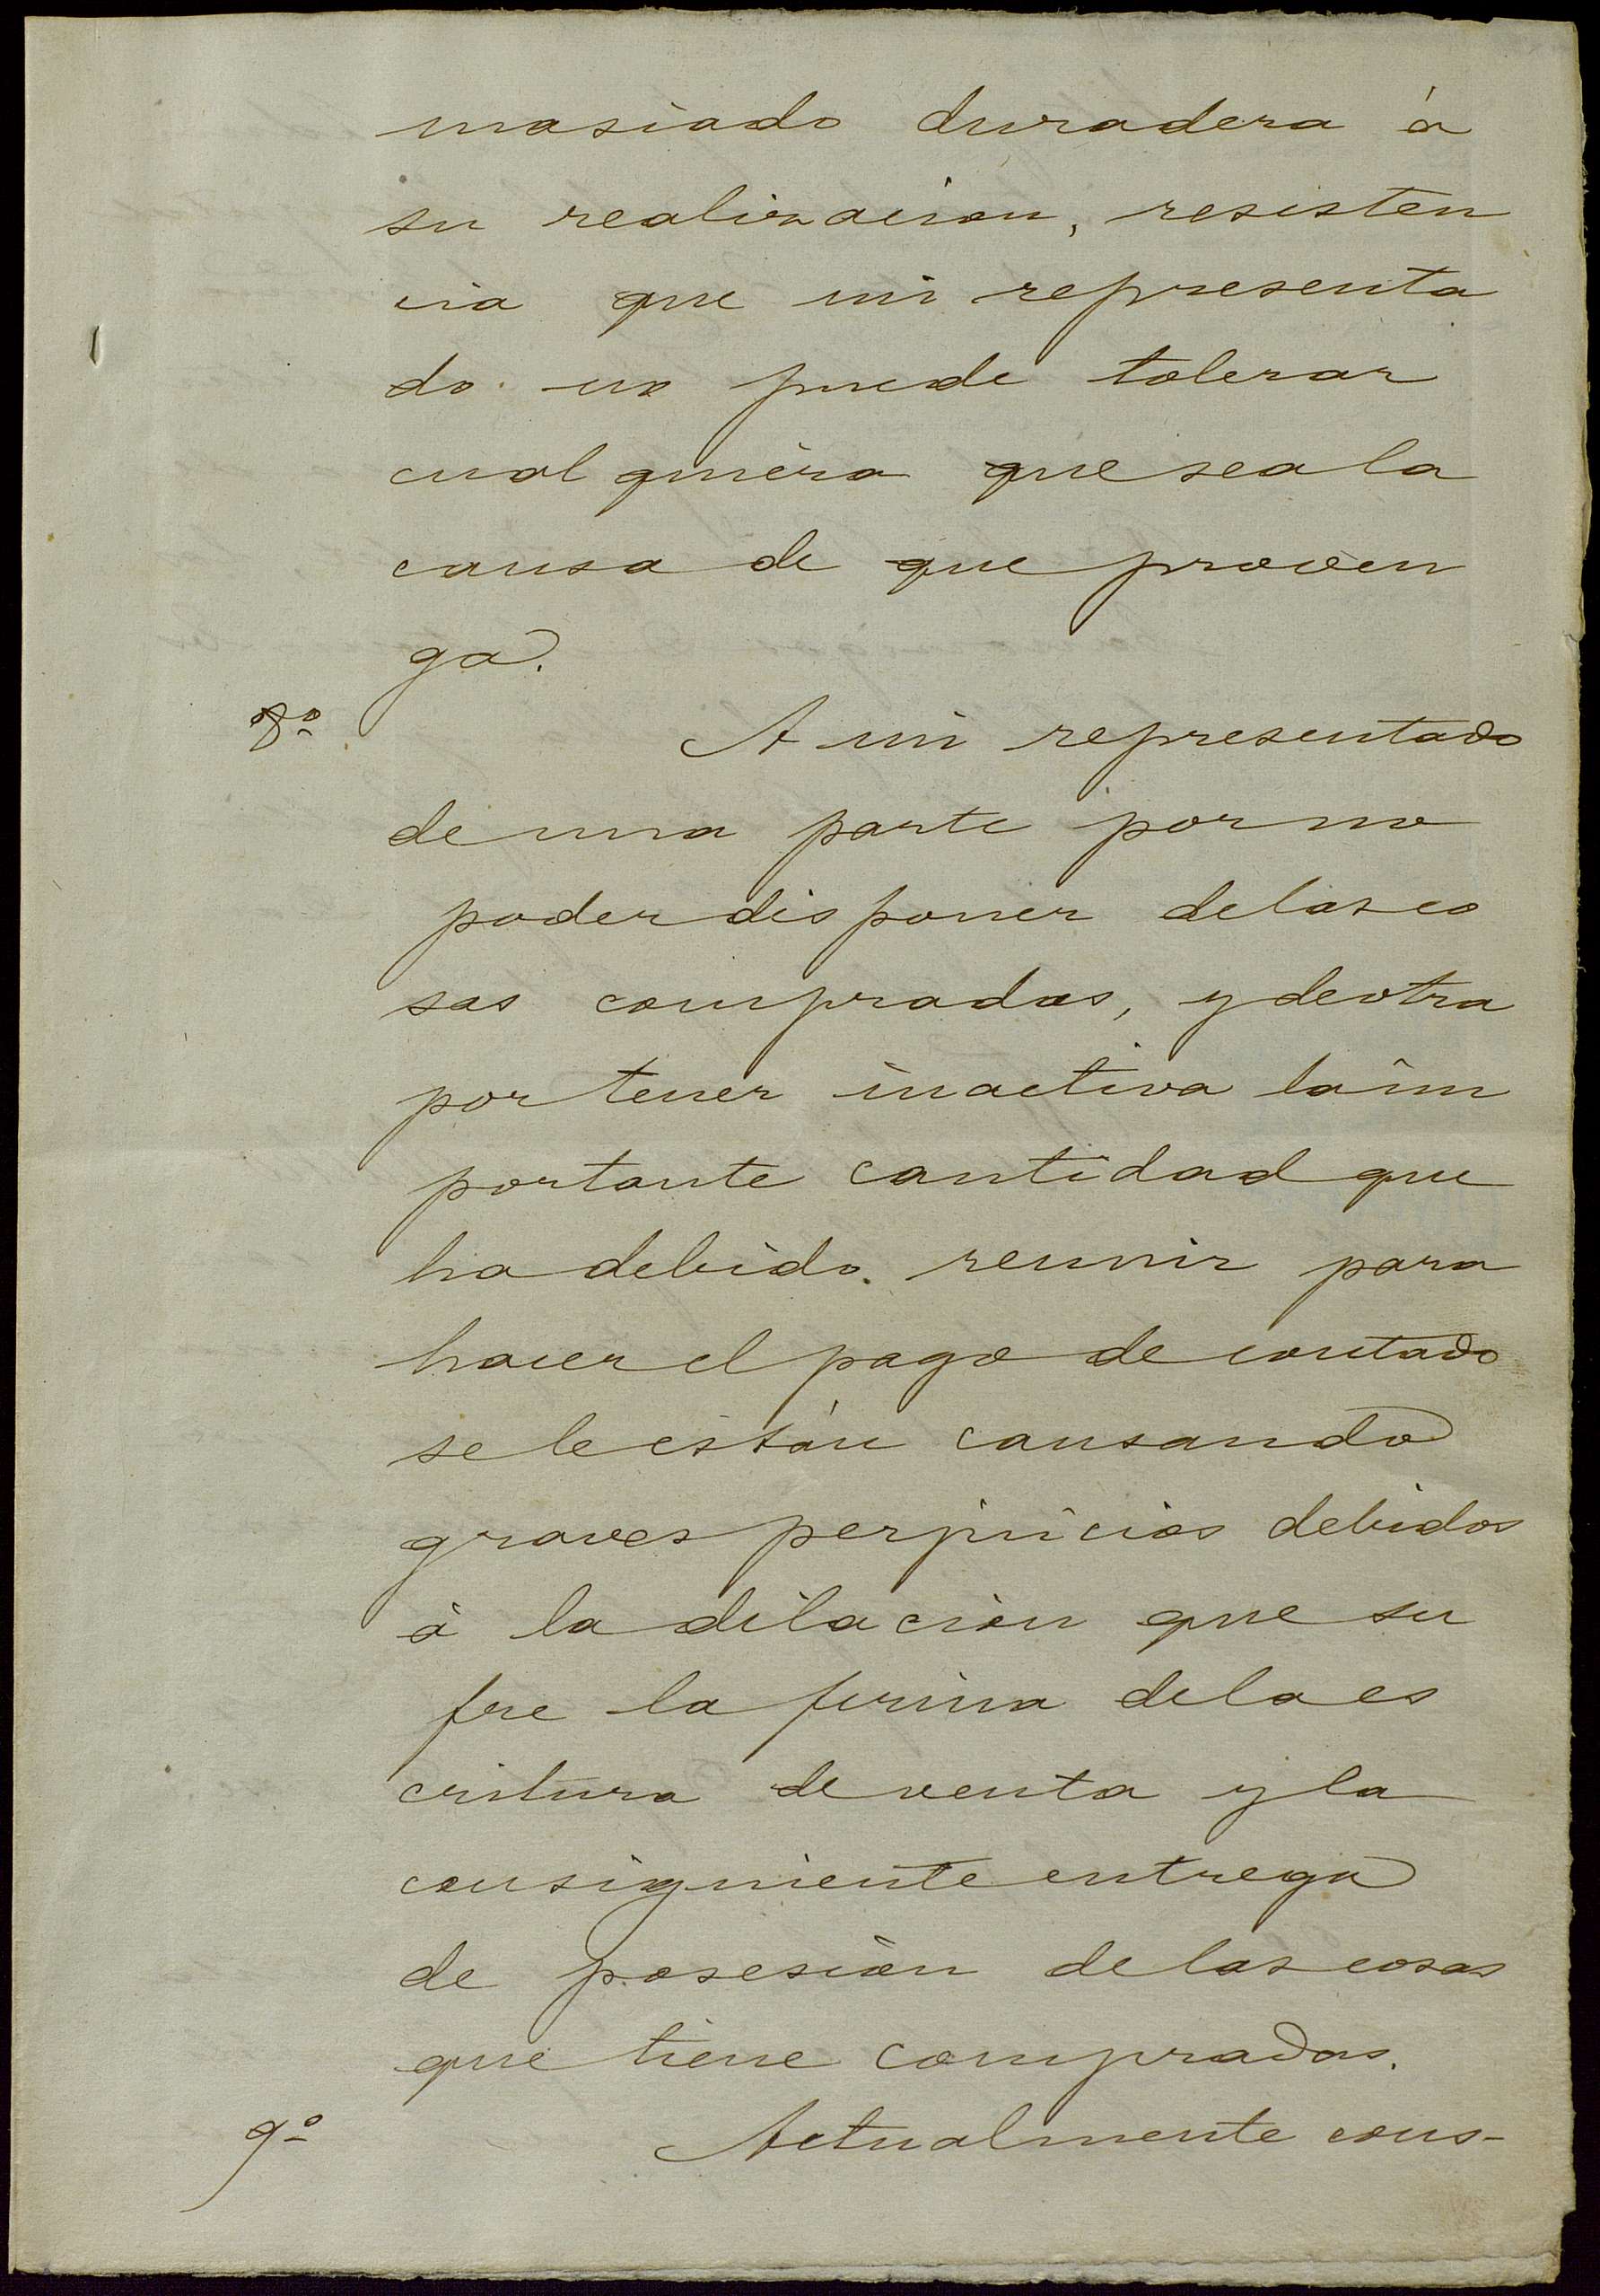 masiado duradera á
su realización, resisten
cia que mi representa
do no puede tolerar
cualquiera que sea la
causa de que proven
ga.
8º A mi representado
de una parte por no
poder disponer de las co
sas compradas, y de otra
por tener inactiva la im
portante cantidad que
ha debido reunir para
hacer el pago de contado
se le están causando
graves perjuicios debidos
á la dilación que su
fre la firma de la es
critura de venta y la
consiguiente entrega
de posesión de las cosas
que tiene compradas.
9º Actualmente cons-